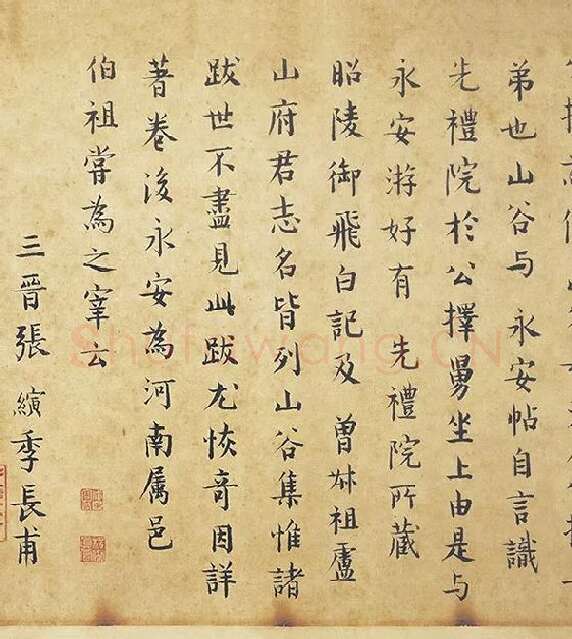 弟也山谷与 永安帖自言識
先禮院於公擇舅坐上由是与
永安游好有 先禮院所藏
昭陵御飛白記及 曾叔祖盧
山府君志名皆列山谷集惟諸
跋世不盡見此跋尤恢奇因詳
著卷後永安為河南属邑
伯祖嘗為之宰云
三晋張縯季長甫
Shufawang.CN